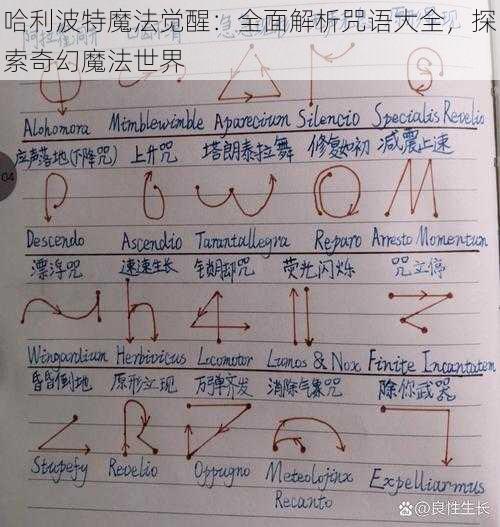 哈利波特魔法觉醒：全面解析咒语大全，探
索奇幻魔法世界
Alohomora Mimblewimble Aparecium Silencio Specialis Revelio
应声落地(下降咒) 上升咒 塔朗泰拉舞 修复如初 减震止速
04
Descendo Ascendio Tarantallegra Reparo Arresto Momentum
漂浮咒 速速生长 锁腿咒 荧光闪烁 咒立停
Wingardium Herbivicus Locomotor Lumos & Nox Finite Incantatem
昏昏倒地 原形立现 万弹齐发 消除气象咒 除你武器
Stupefy Revelio Oppugno Meteolojinx Expelliarmus
Recanto
良性生长